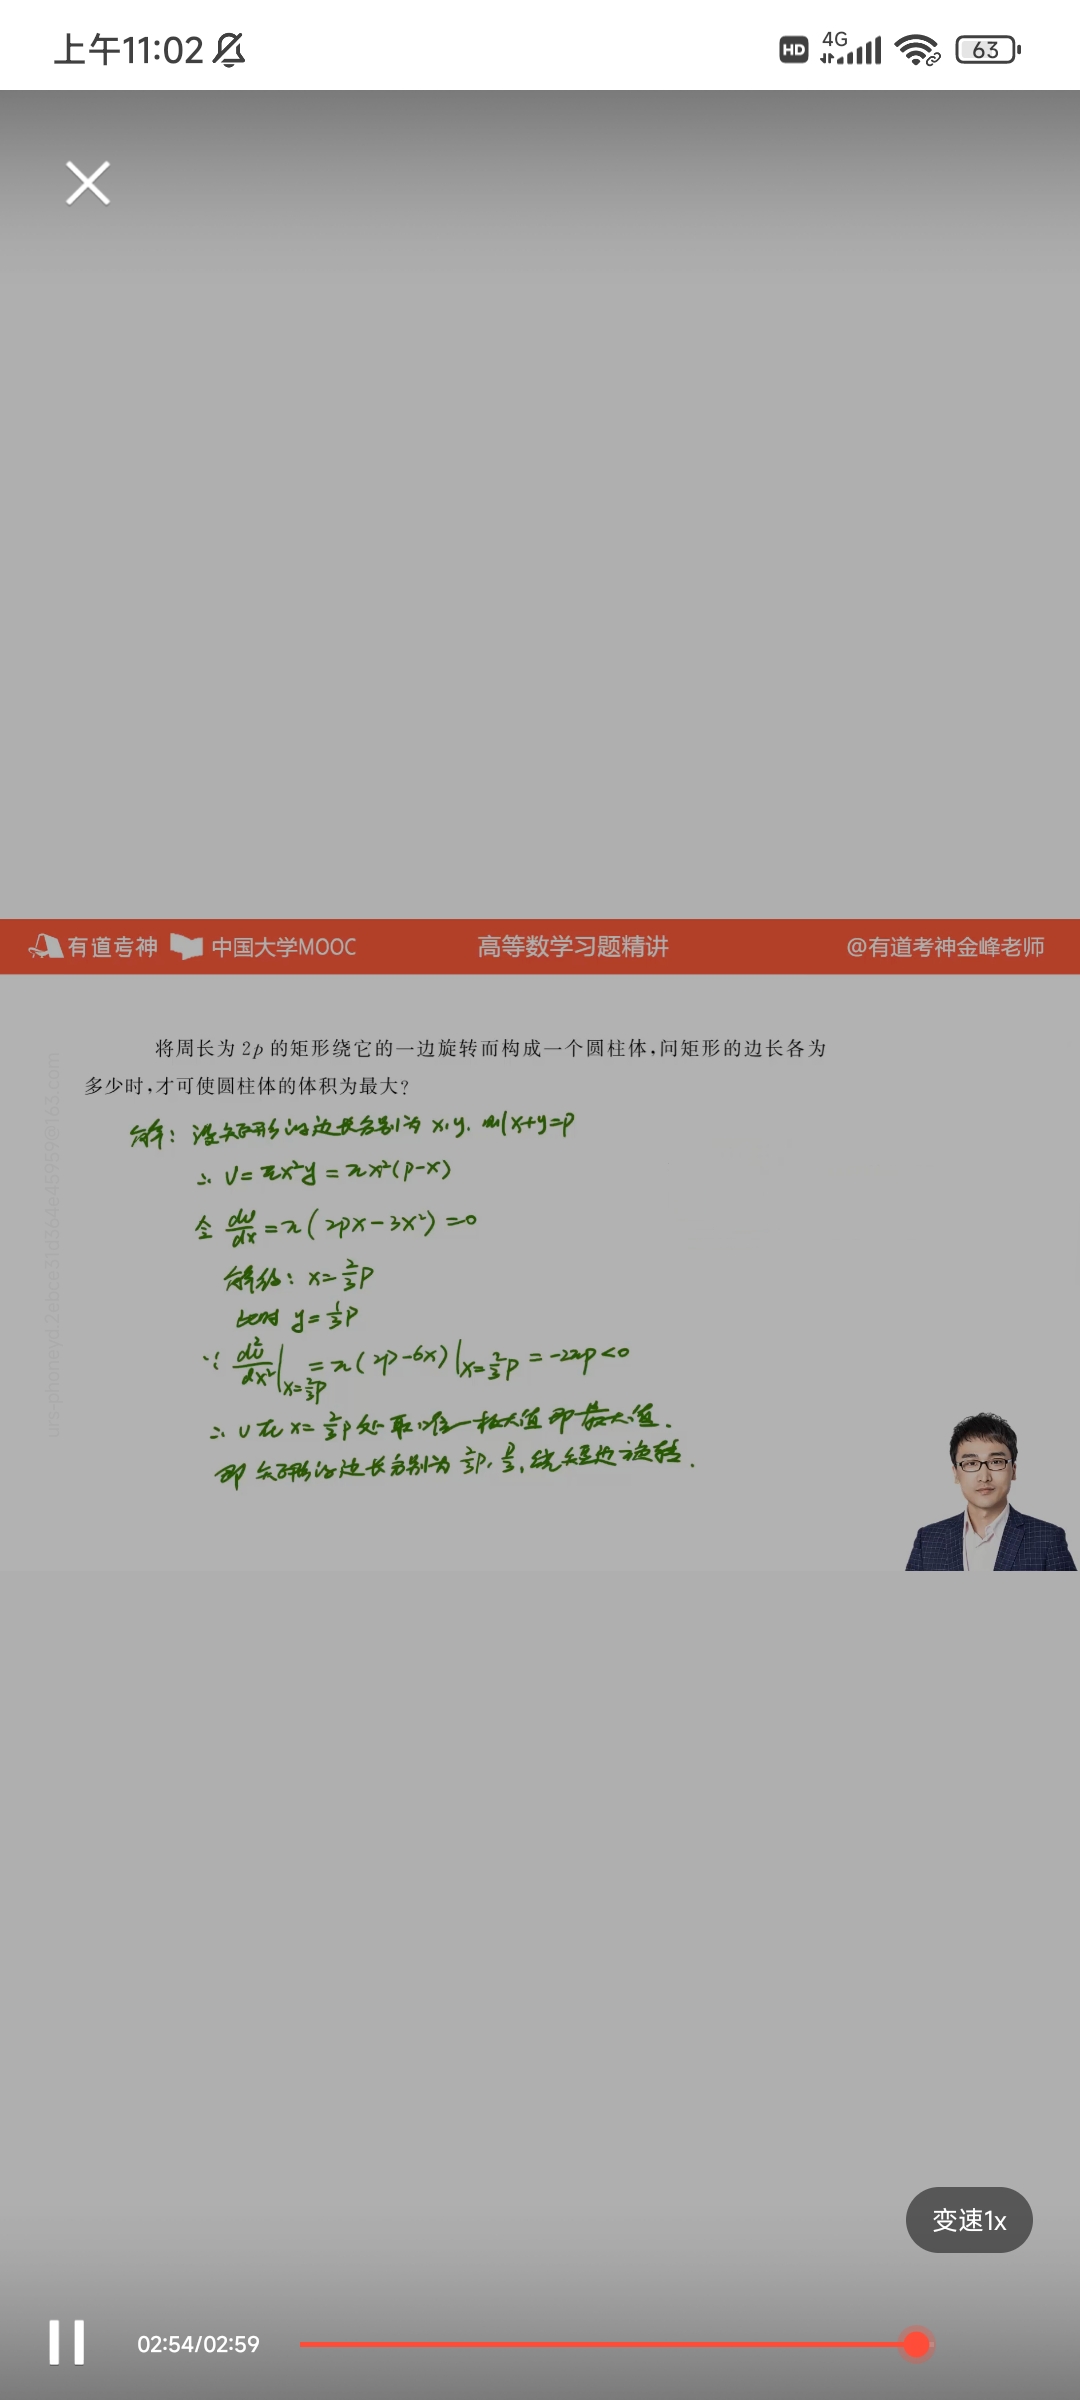 上午11:02
HD 4G 63
有道考神 中国大学MOOC 高等数学习题精讲 @有道考神金峰老师
将周长为 2p 的矩形绕它的一边旋转而构成一个圆柱体,问矩形的边长各为
多少时,才可使圆柱体的体积为最大?
解: 设矩形的边长分别为 x,y. 则x+y=p
∴ V=πx²y=πx²(p-x)
令 dv/dx=π(2px-3x²)=0
解得: x=2/3p
此时 y=1/3p
∵ d²v/dx²|x=2/3p =π(2p-6x)|x=2/3p =-2πp<0
∴ V在 x=2/3p 处取唯一极大值即最大值.
即 矩形的边长分别为 2/3p, p/3, 绕短边旋转.
变速1x
02:54/02:59